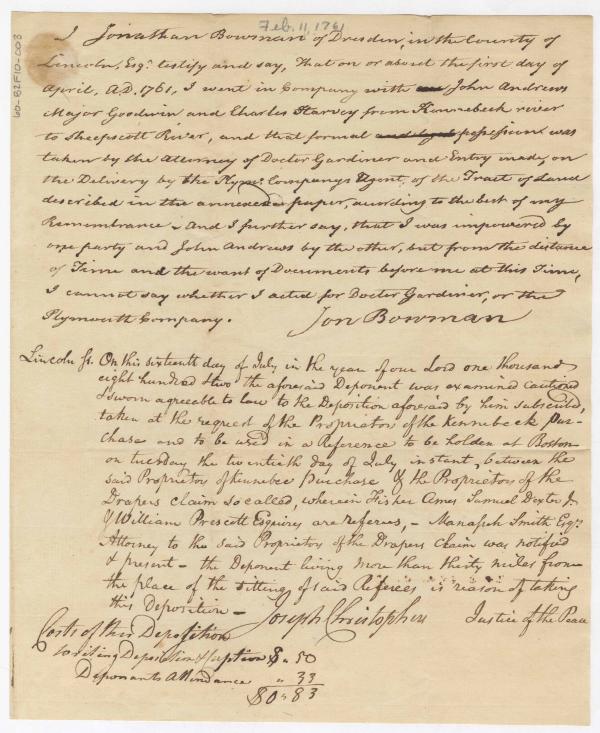 Feb. 11, 1761
60-82F10-003
I Jonathan Bowman of Dresden, in the County of
Lincoln, Esqr. testify and say, That on or about the first day of
April, A.D. 1761, I went in Company with John Andrews
Major Goodwin and Charles Harvey from Kennebeck river
to Sheepscott River, and that formal and legal possession was
taken by the Attorney of Doctor Gardiner and Entry made, on
the Delivery by the Plymo. Companys Agent, of the Tract of Land
described in the annexed paper, according to the best of my
Remembrance, And I further say, that I was impowered by
one party and John Andrews by the other, but from the distance
of Time and the want of Documents before me at this Time,
I cannot say whether I acted for Docter Gardiner, or the
Plymouth Company.
Jon Bowman
Lincoln Ss. On this sixteenth day of July in the year of our Lord one thousand
eight hundred & two the aforesaid Deponent was examined cautioned
& sworn agreeable to law to the Deposition aforesaid by him subscribed,
taken at the request of the Proprietors of the Kennebeck Pur-
chase and to be used in a Reference to be holden at Boston
on tuesday the twentieth day of July instant, between the
said Proprietors of Kennebec purchase & the Proprietors of the
Drapers claim so called, wherein Fisher Ames Samuel Dexter Jr.
& William Prescott Esquires are referees, - Manasseh Smith Esqr.
Attorney to the said Proprietors of the Drapers Claim was notified
& present - the Deponent living more than thirty miles from
the place of the sitting of said Referees is reason of taking
this deposition -
Joseph Christophers Justice of the Peace
Costs of this Deposition
writing Deposition & Caption $ " 50
Deponants Attendance " 33
$0 " 83